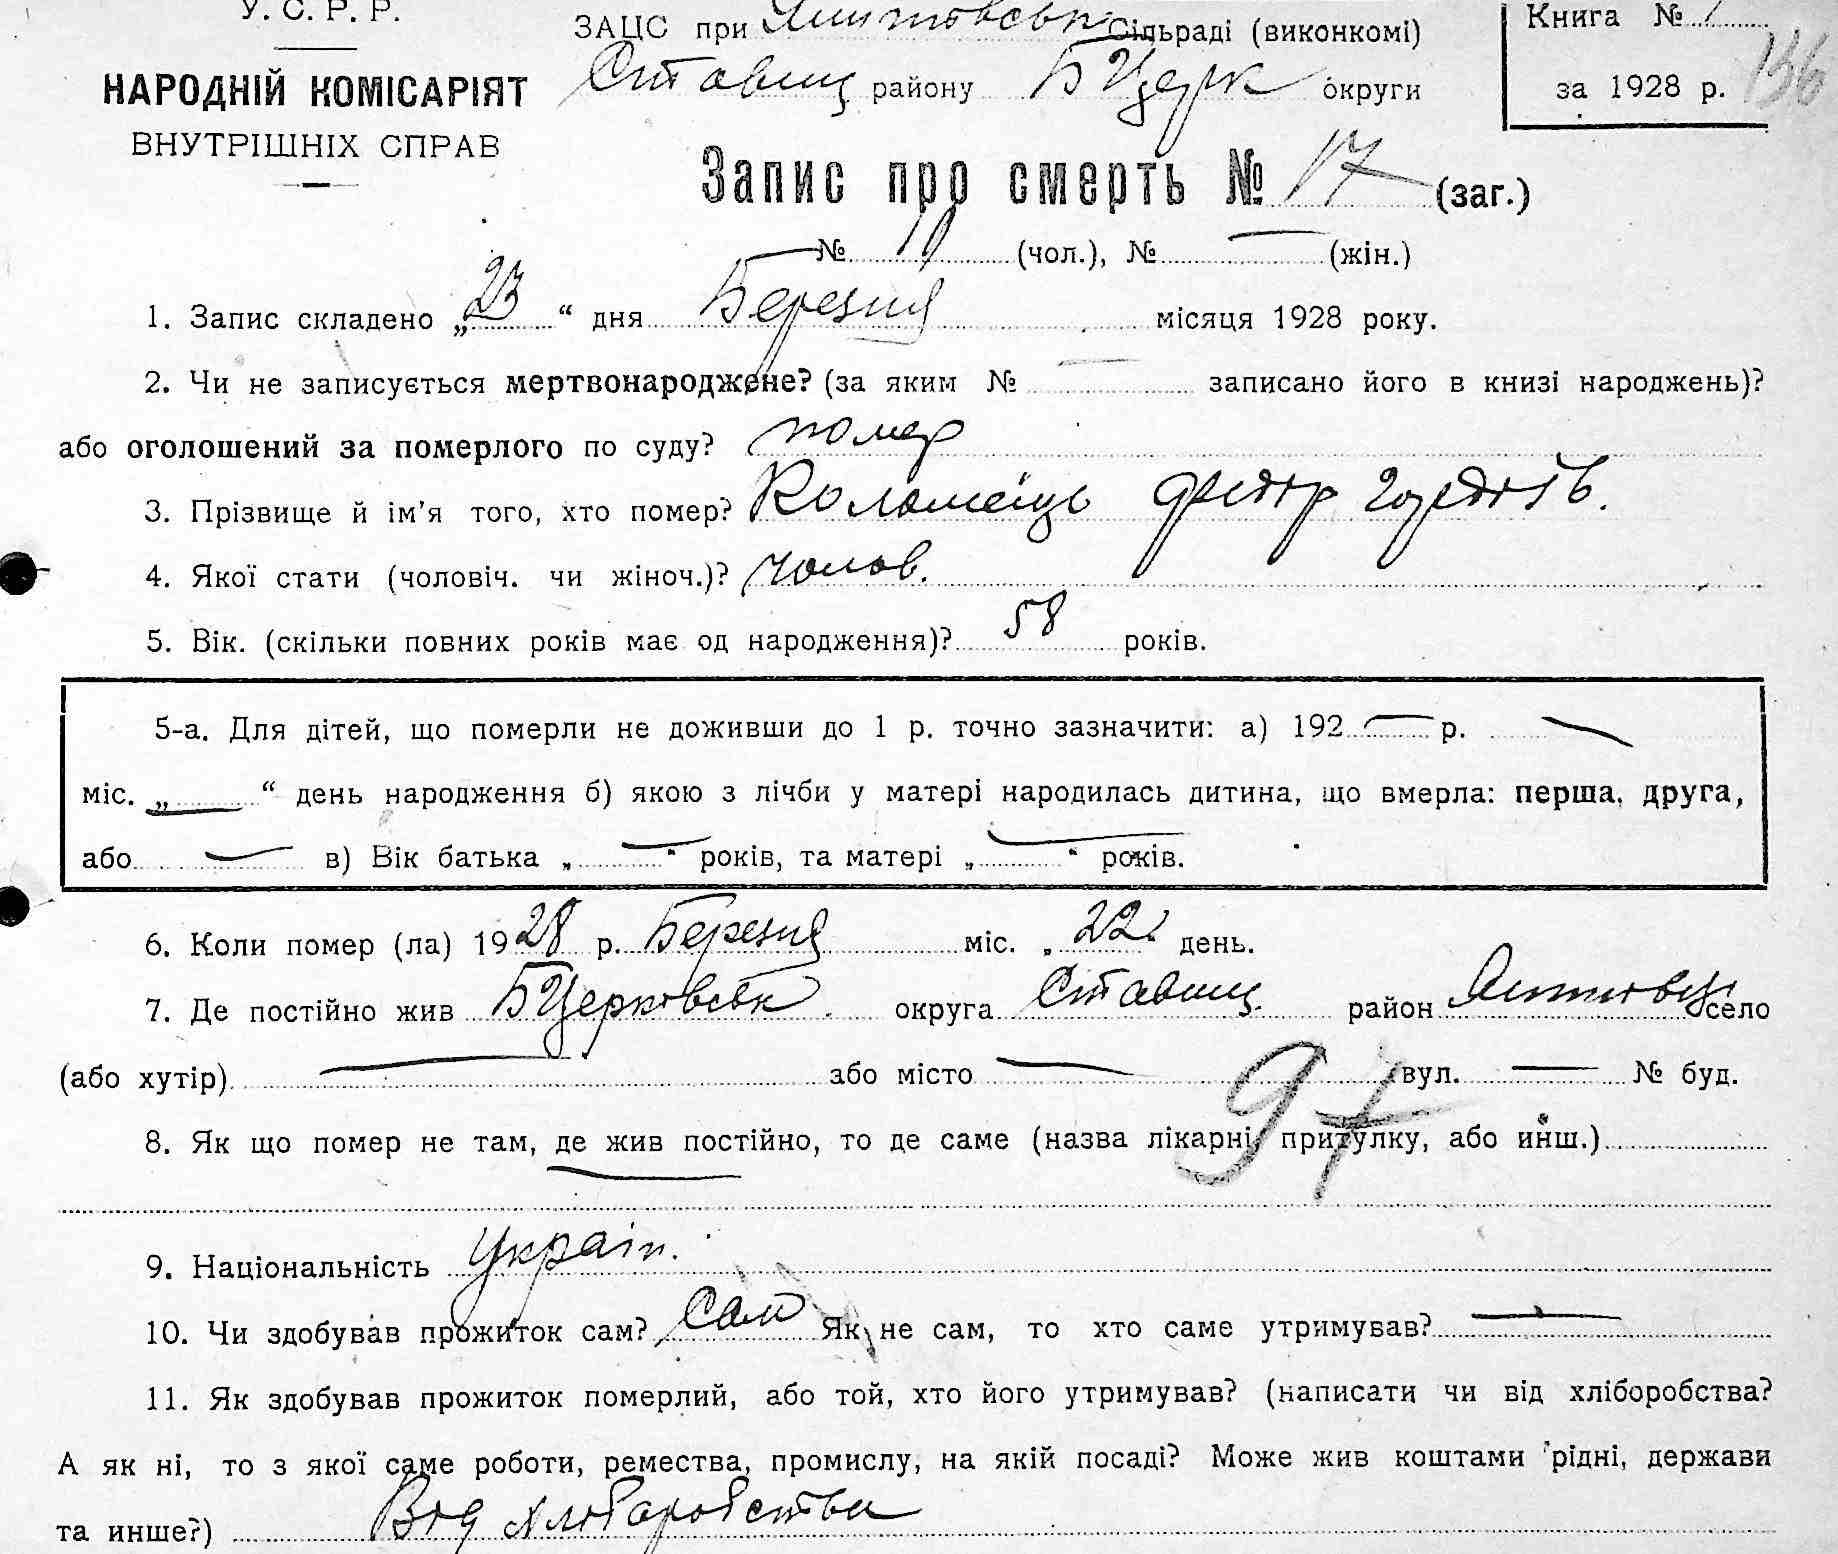 У. С. Р. Р.
НАРОДНІЙ КОМІСАРІЯТ
ВНУТРІШНІХ СПРАВ
ЗАЦС при сільраді (виконкомі)
Ставищ району БЦерк округи
Книга № 1
за 1928 р. 136
Запис про смерть № 17 (заг.)
№ 10 (чол.), № — (жін.)
1. Запис складено „23“ дня Березня місяця 1928 року.
2. Чи не записується мертвонароджене? (за яким № — записано його в книзі народжень)?
або оголошений за померлого по суду? помер
3. Прізвище й ім'я того, хто помер? Коломєїць Федір
4. Якої стати (чоловіч. чи жіноч.)? чолов.
5. Вік. (скільки повних років має од народження)? 58 років.
5-а. Для дітей, що померли не доживши до 1 р. точно зазначити: а) 192 — р. —
міс. „—“ день народження б) якою з лічби у матері народилась дитина, що вмерла: перша, друга,
або — в) Вік батька „—“ років, та матері „—“ років.
6. Коли помер (ла) 1928 р. Березня міс. „22 день.
7. Де постійно жив БЦерковськ округа Ставищ. район село
(або хутір) — або місто — вул. — № буд.
8. Як що помер не там, де жив постійно, то де саме (назва лікарні, притулку, або инш.)
97
9. Національність Україн.
10. Чи здобував прожиток сам? Сам Як не сам, то хто саме утримував? —
11. Як здобував прожиток померлий, або той, хто його утримував? (написати чи від хліборобства?
А як ні, то з якої саме роботи, ремества, промислу, на якій посаді? Може жив коштами рідні, держави
та инше?) Від хліборобства